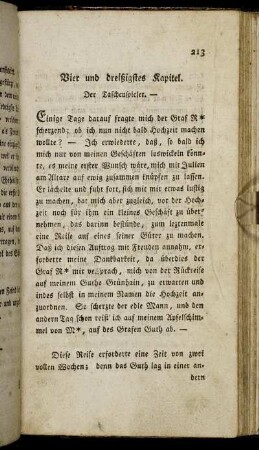 213
Vier und dreißigstes Kapitel.
Der Taschenspieler. —
Einige Tage darauf fragte mich der Graf R*
scherzend; ob ich nun nicht bald Hochzeit machen
wollte? — Ich erwiederte, daß, so bald ich
mich nur von meinen Geschäften loswickeln könn-
te, es meine erster Wunsch wäre, mich mit Julien
am Altare auf ewig zusammen knüpfen zu lassen.
Er lächelte und fuhr fort, sich mit mir etwas lustig
zu machen, bat mich aber zugleich, vor der Hoch-
zeit noch für ihm ein kleines Geschäft zu über-
nehmen, das darinn bestünde, zum leztenmale
eine Reise auf eines seiner Güter zu machen.
Daß ich diesen Auftrag mit Freuden annahm, er-
forderte meine Dankbarkeit, da überdies der
Graf R* mir versprach, mich von der Rückreise
auf meinem Guthe Grünhain, zu erwarten und
indes selbst in meinem Namen die Hochzeit an-
zuordnen. So scherzte der edle Mann, und den
andern Tag schon reist' ich auf meinem Apfelschim-
mel von M*, auf des Grafen Guth ab. —
Diese Reise erforderte eine Zeit von zwei
vollen Wochen; denn das Guth lag in einer an-
dern